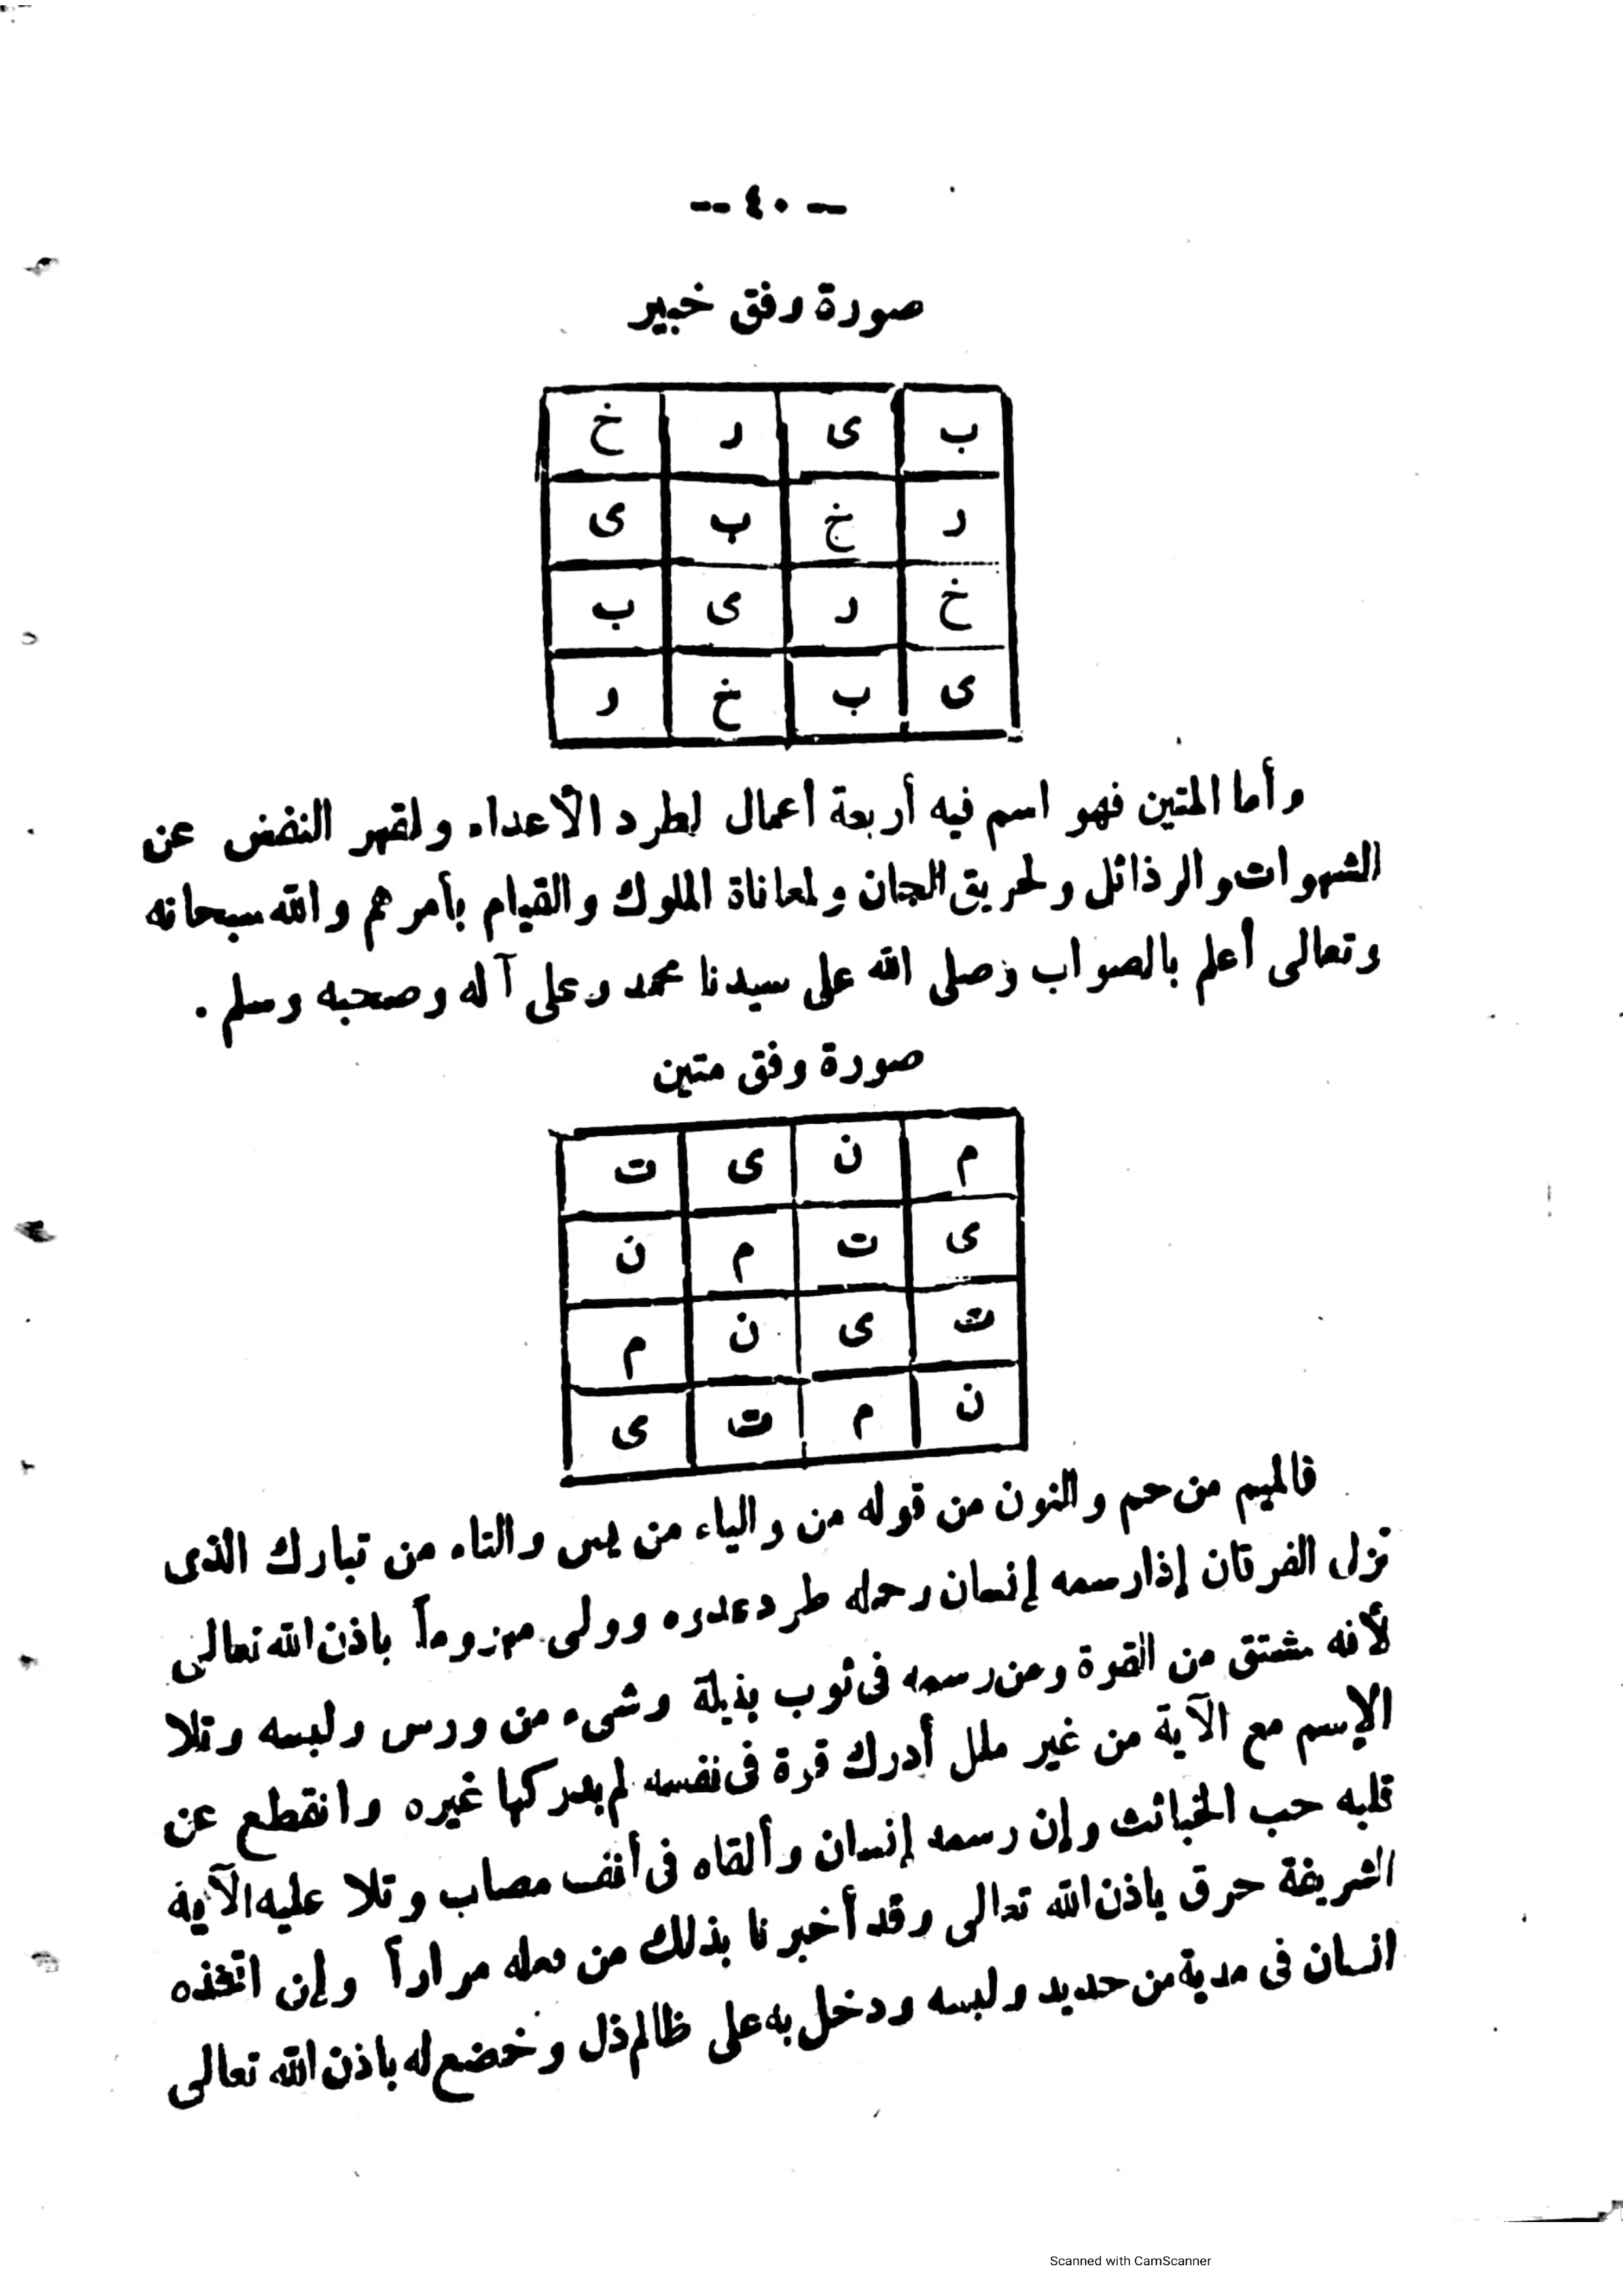 -- ٤٠ --
صورة وفق خبير
ب ى ر خ
ر خ ب ى
خ ر ى ب
ى ب خ ر
وأما المتين فهو اسم فيه أربعة أعمال لطرد الأعداء ولقهر النفس عن
الشهوات والرذائل ولحريق الجان ولمعاناة الملوك والقيام بأمرهم والله سبحانه
وتعالى أعلم بالصواب وصلى الله على سيدنا محمد وعلى آله وصحبه وسلم .
صورة وفق متين
م ن ى ت
ى ت م ن
ت ى ن م
ن م ت ى
فالميم من حم والنون من قوله من والياء من يس والتاء من تبارك الذى
نزل الفرقان إذا رسمه إنسان وحمله طرد عدوه وولى مهزوماً باذن الله تعالى
لأنه مشتق من القوة ومن رسمه فى ثوب بذيلة وشىء من ورس ولبسه وتلا
الإسم مع الآية من غير ملل أدرك قوة فى نفسه لم يدركها غيره وانقطع عن
قلبه حب الخبائث وإن رسمه إنسان وألقاه فى أنف مصاب وتلا عليه الآية
الشريفة حرق باذن الله تعالى وقد أخبرنا بذلك من فعله مراراً وإن اتخذه
انسان فى مدية من حديد ولبسه ودخل به على ظالم ذل وخضع له باذن الله تعالى
Scanned with CamScanner